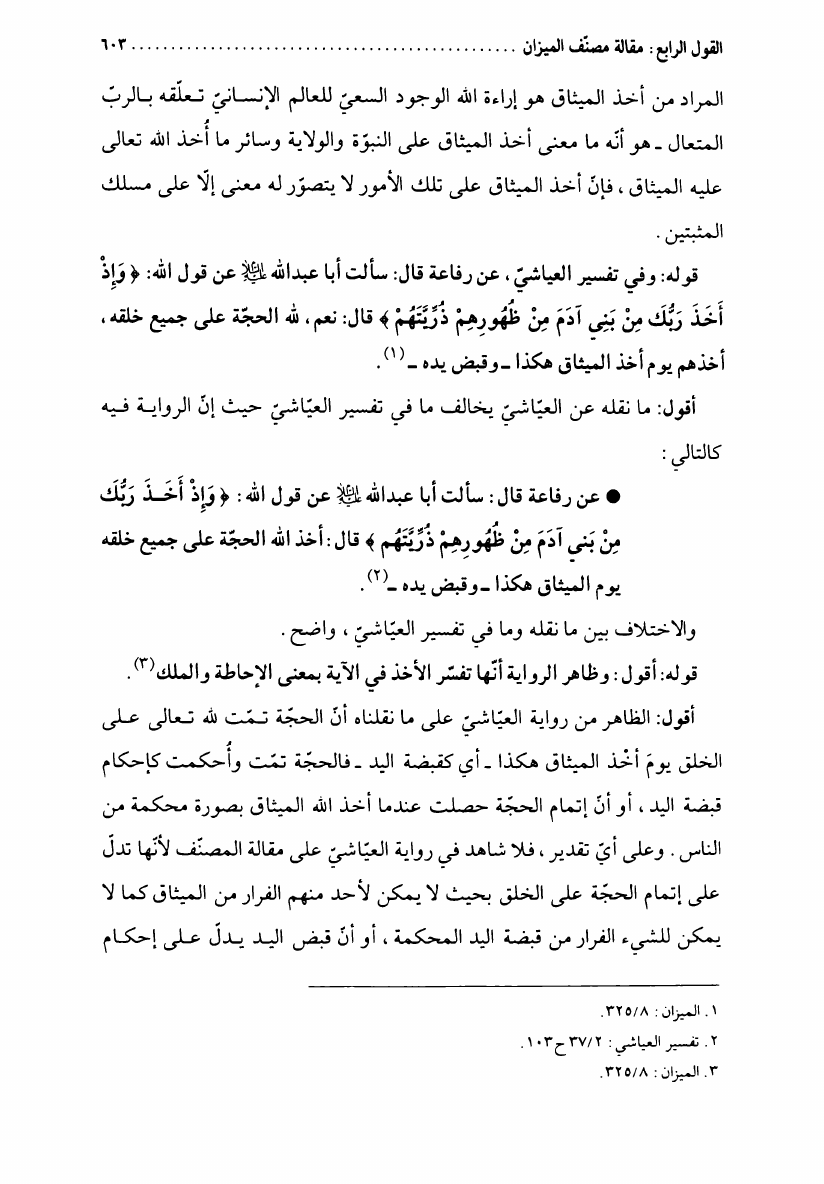 القول الرابع: مقالة مصنّف الميزان ................................................ ٦٠٣
المراد من أخذ الميثاق هو إراءة الله الوجود السعيّ للعالم الإنسانيّ تعلّقه بالربّ
المتعال ـ هو أنّه ما معنى أخذ الميثاق على النبوّة والولاية وسائر ما أُخذ الله تعالى
عليه الميثاق، فإنّ أخذ الميثاق على تلك الأمور لا يتصوّر له معنى إلّا على مسلك
المثبتين.
قوله: وفي تفسير العياشيّ، عن رفاعة قال: سألت أبا عبدالله عليه السلام عن قول الله: ﴿ وَإِذْ
أَخَذَ رَبُّكَ مِنْ بَنِي آدَمَ مِنْ ظُهُورِهِمْ ذُرِّيَّتَهُمْ ﴾ قال: نعم، لله الحجّة على جميع خلقه،
أخذهم يوم أخذ الميثاق هكذا ـ وقبض يده ـ(١).
أقول: ما نقله عن العيّاشيّ يخالف ما في تفسير العيّاشيّ حيث إنّ الرواية فيه
كالتالي:
● عن رفاعة قال: سألت أبا عبدالله عليه السلام عن قول الله: ﴿ وَإِذْ أَخَـذَ رَبُّكَ
مِنْ بَني آدَمَ مِنْ ظُهُورِهِمْ ذُرِّيَّتَهُم ﴾ قال: أخذ الله الحجّة على جميع خلقه
يوم الميثاق هكذا ـ وقبض يده ـ(٢).
والاختلاف بين ما نقله وما في تفسير العيّاشيّ، واضح.
قوله: أقول: وظاهر الرواية أنّها تفسّر الأخذ في الآية بمعنى الإحاطة والملك(٣).
أقول: الظاهر من رواية العيّاشيّ على ما نقلناه أنّ الحجّة تـمّت لله تـعالى عـلى
الخلق يومَ أخْذ الميثاق هكذا ـ أي كقبضة اليد ـ فالحجّة تمّت وأُحكمت كإحكام
قبضة اليد، أو أنّ إتمام الحجّة حصلت عندما أخذ الله الميثاق بصورة محكمة من
الناس. وعلى أيّ تقدير، فلا شاهد في رواية العيّاشيّ على مقالة المصنّف لأنّها تدلّ
على إتمام الحجّة على الخلق بحيث لا يمكن لأحد منهم الفرار من الميثاق كما لا
يمكن للشيء الفرار من قبضة اليد المحكمة، أو أنّ قبض اليـد يـدلّ عـلى إحكـام
١. الميزان: ٣٢٥/٨.
٢. تفسير العياشي: ٣٧/٢ ح١٠٣.
٣. الميزان: ٣٢٥/٨.